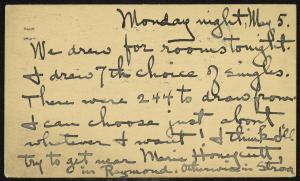 Monday night, May 5.
We drew for rooms tonight.
I drew 7th choice of singles.
There were 244 to draw from.
I can choose just about
whatever I want! I think I'll
try to get near Marie
in Raymond. Otherwise in Strong